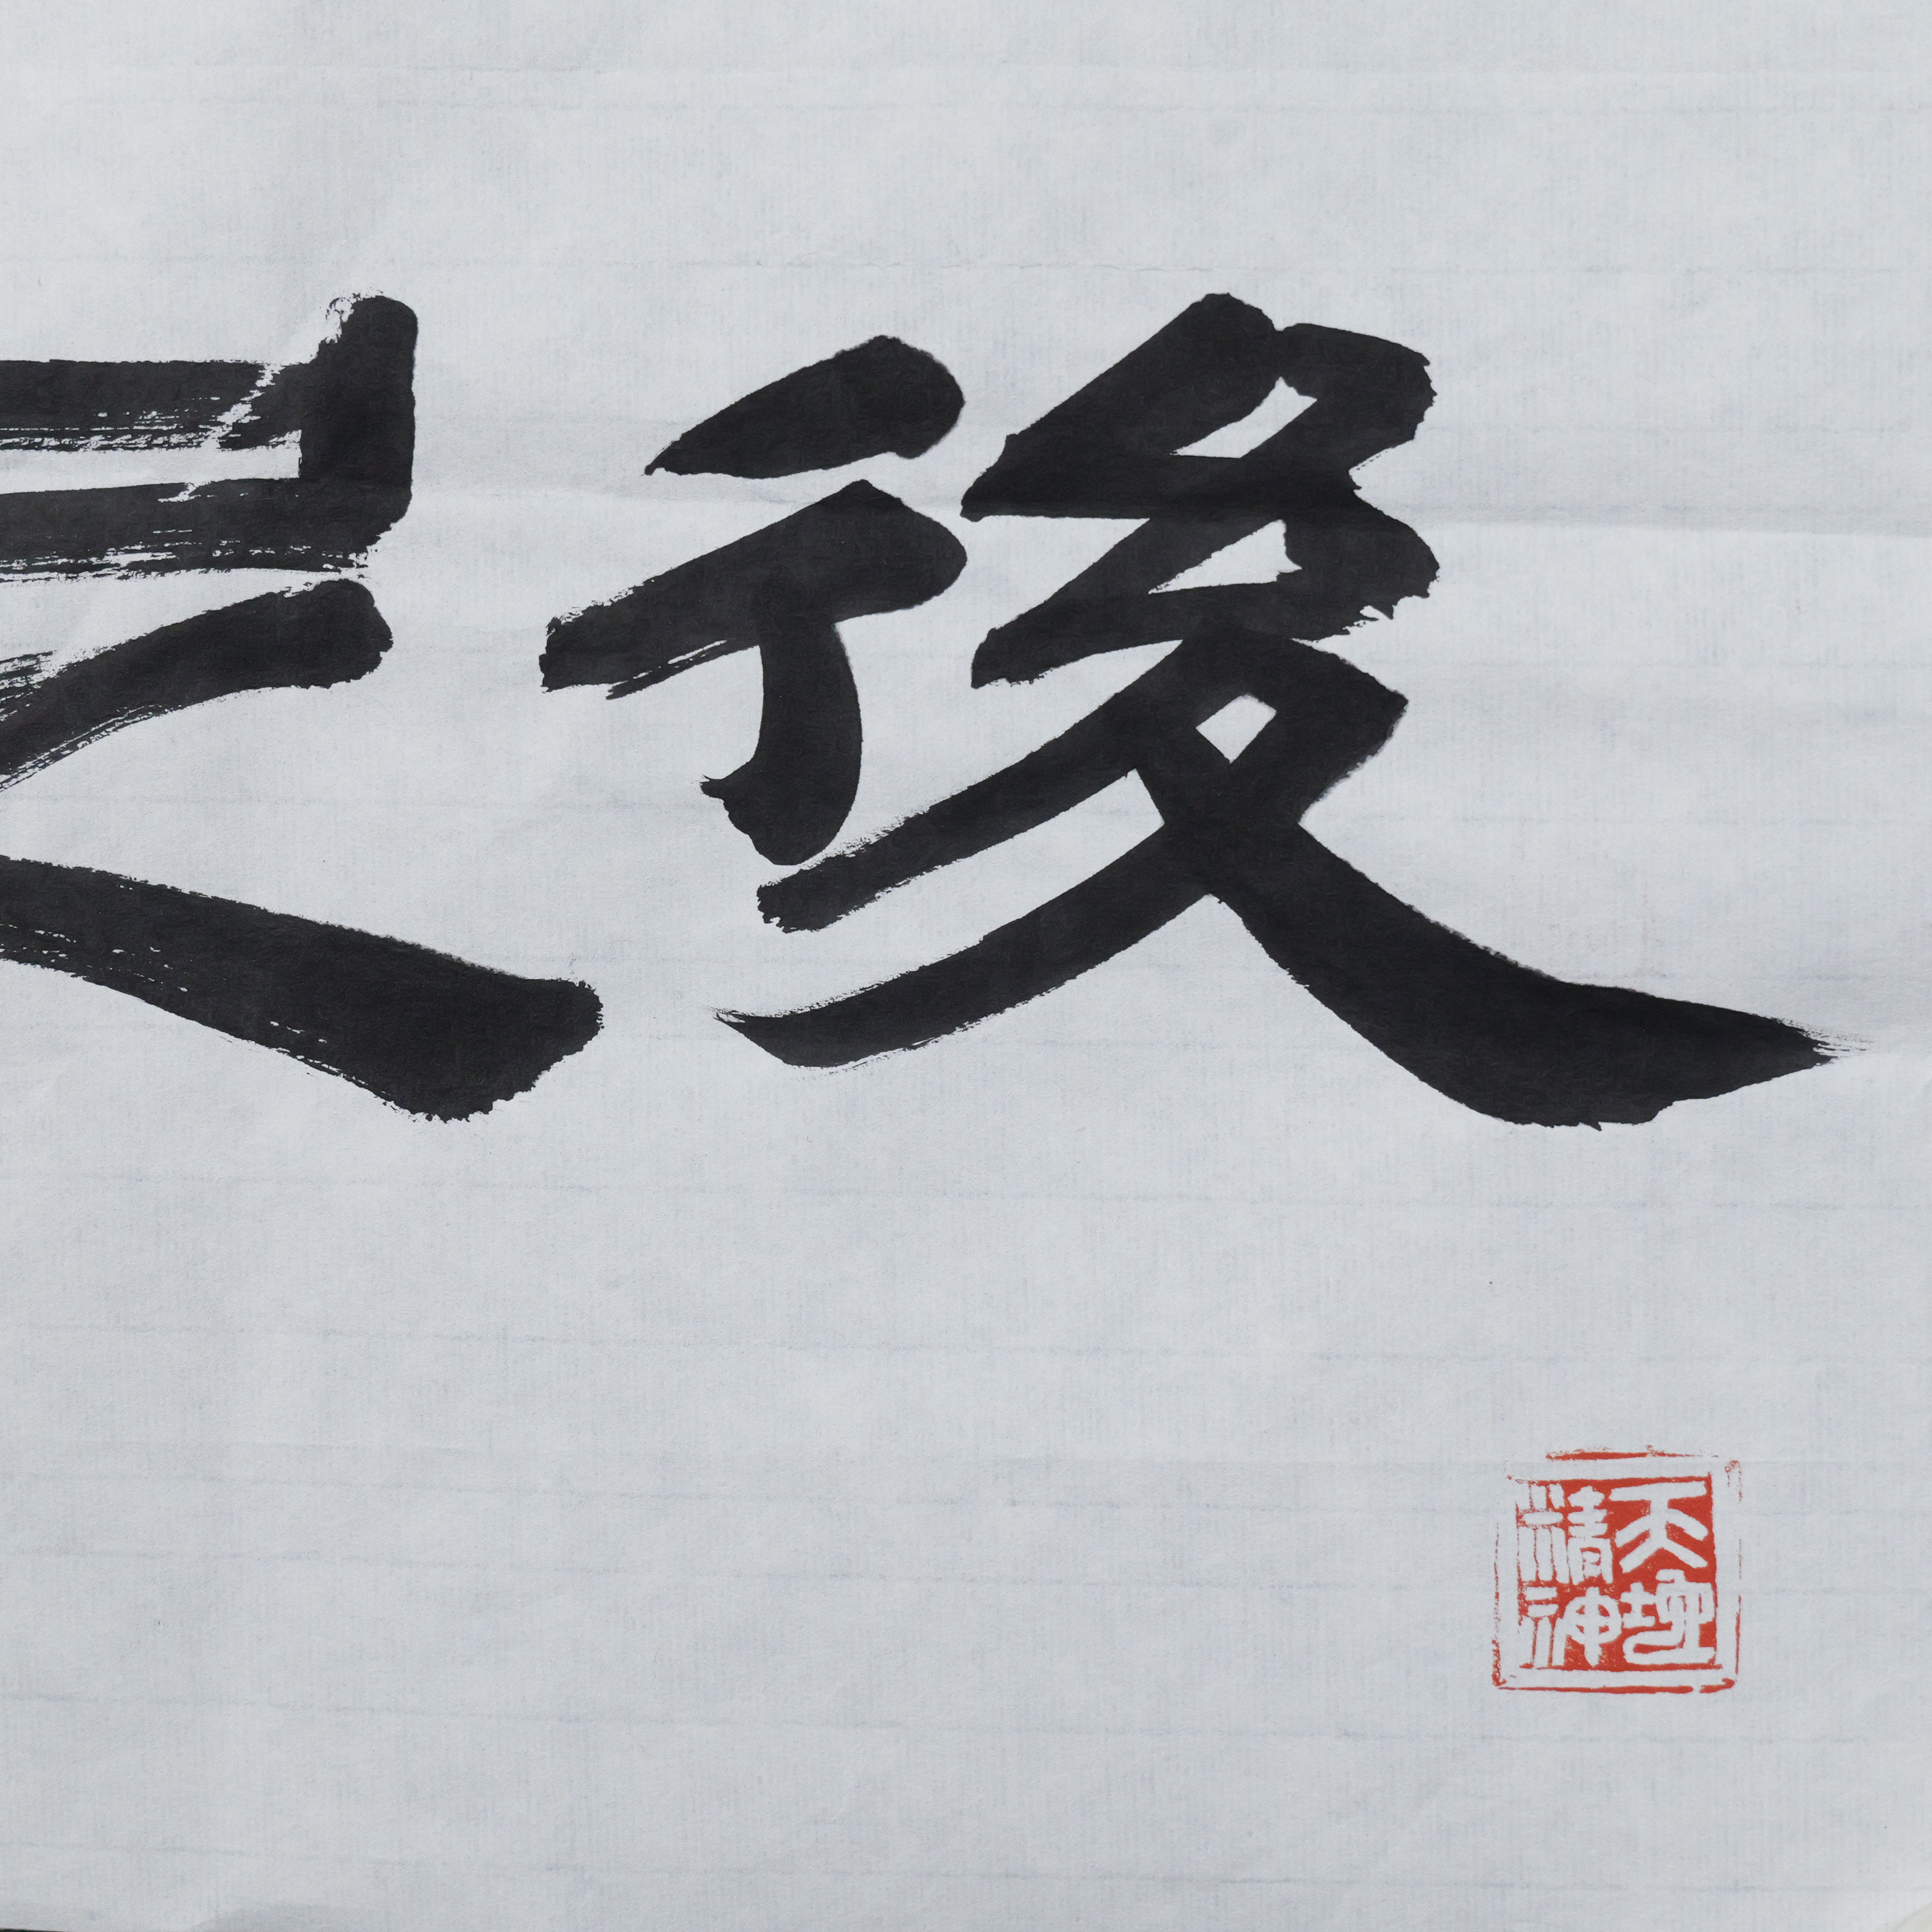 後
天地
精神